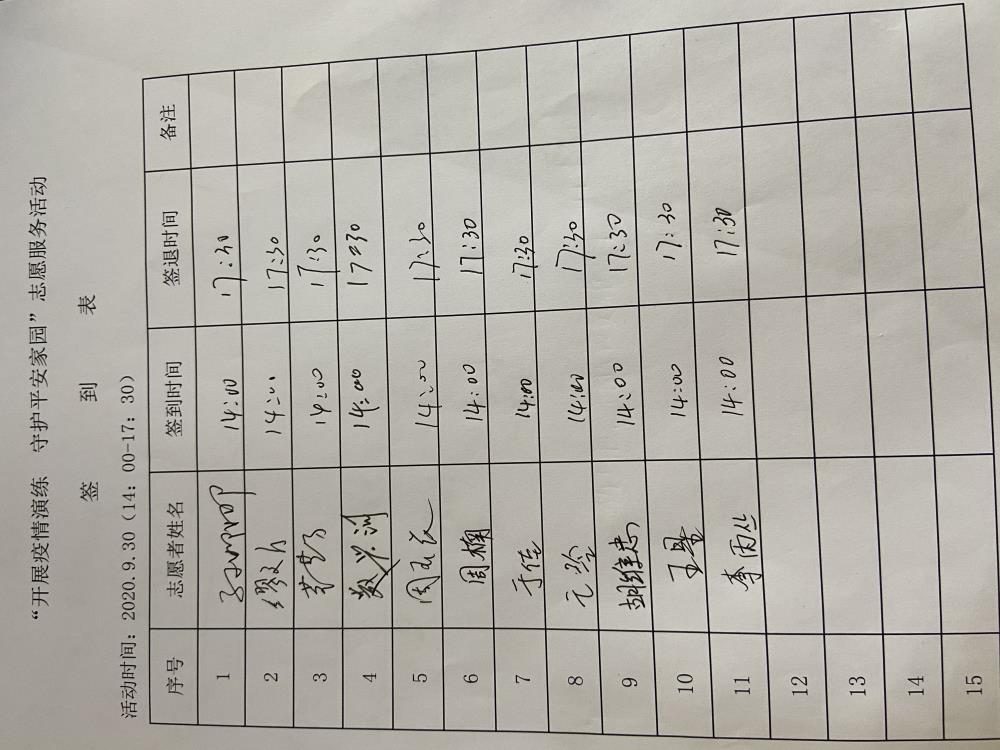 “开展疫情演练 守护平安家园”志愿服务活动
签 到 表
活动时间：2020.9.30（14：00-17：30）
序号 志愿者姓名 签到时间 签退时间 备注
1 14:00 17:30
2 14:00 17:30
3 14:00 17:30
4 14:00 17:30
5 14:00 17:30
6 周楠 14:00 17:30
7 于佳 14:00 17:30
8 14:00 17:30
9 胡维忠 14:00 17:30
10 14:00 17:30
11 李丙丛 14:00 17:30
12
13
14
15